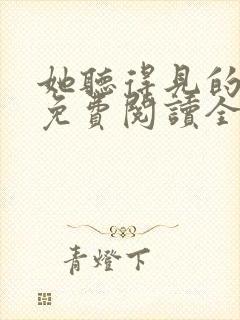 她聽得見的
免費閱讀全
青燈下